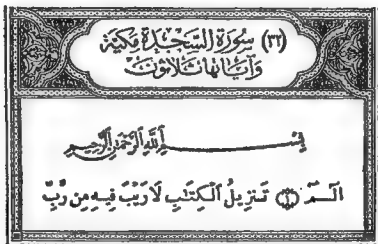 (٣٢) سُورَةُ السَّجْدَةِ مَكِّيَّة
وَآيَاتُهَا ثَلَاثُونَ
بِسْمِ اللَّهِ الرَّحْمَٰنِ الرَّحِيمِ
الٓمٓ ۝١ تَنزِيلُ ٱلْكِتَٰبِ لَا رَيْبَ فِيهِ مِن رَّبِّ